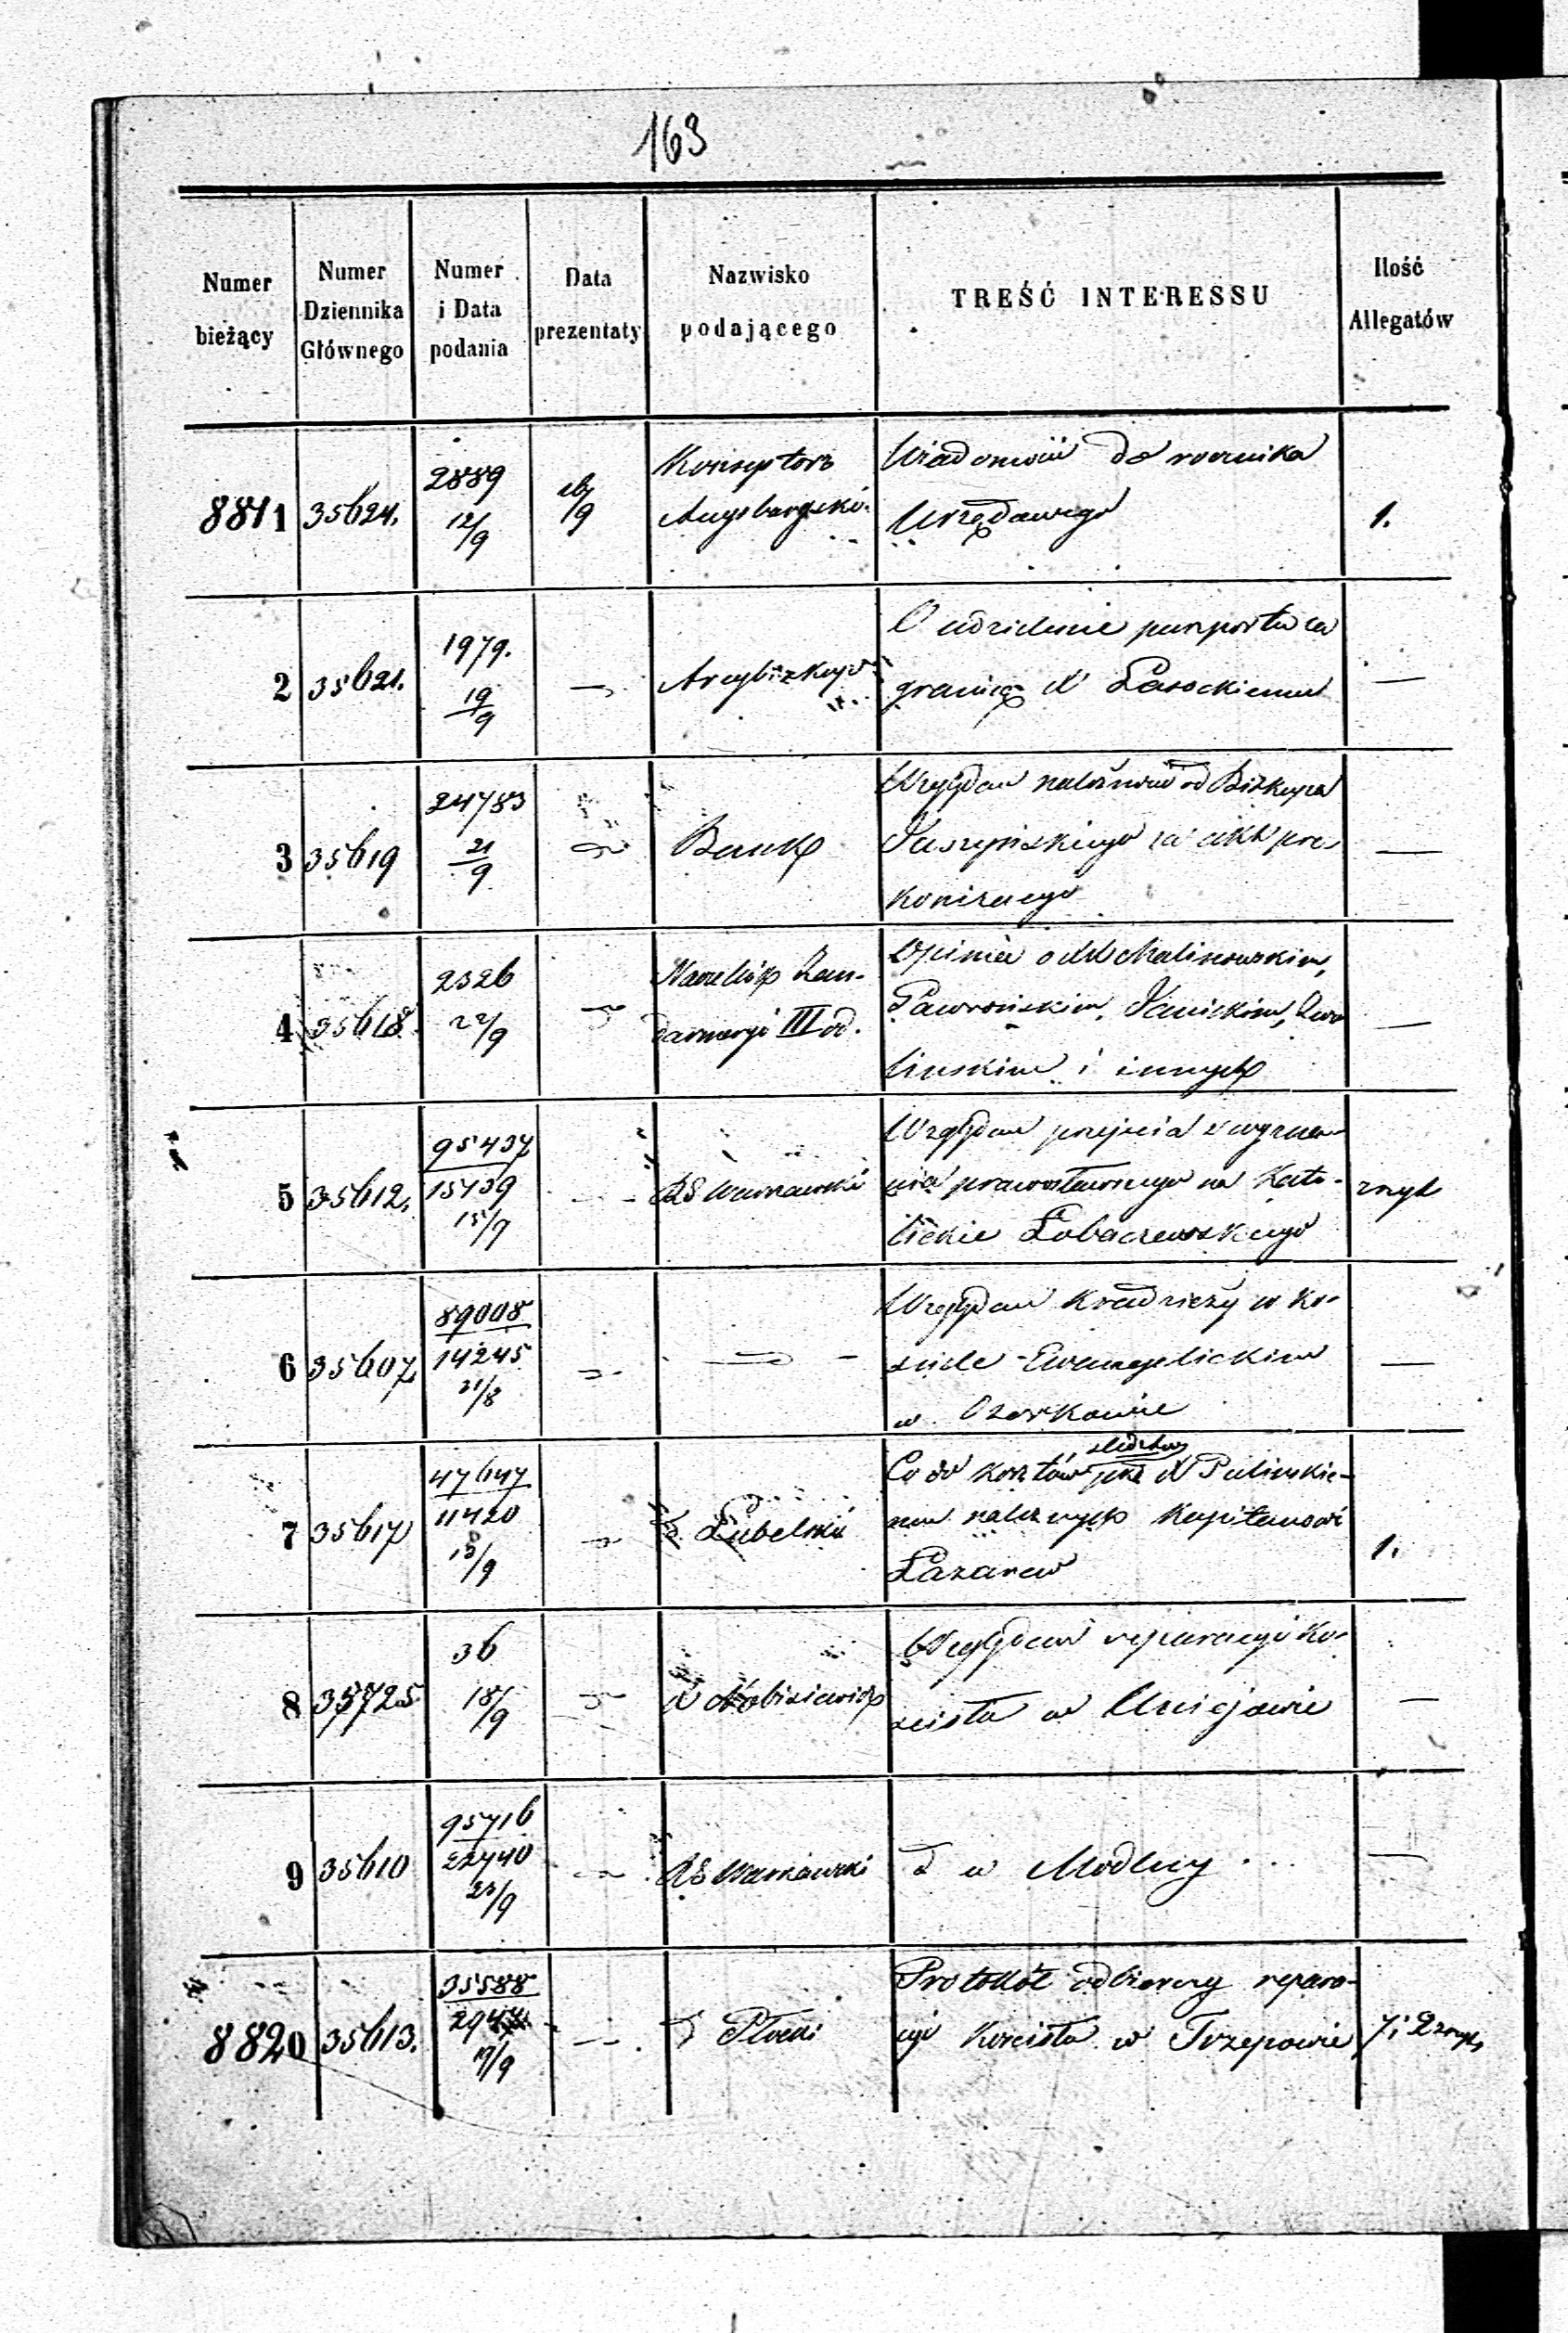 163
Numer bieżący | Numer Dziennika Głównego | Numer i Data podania | Data prezentaty | Nazwisko podającego | TREŚĆ INTERESSU | Ilość Allegatów
8811 | 35624. | 2889 12/9 | 26/9 | Konsystorz Augsburgski | Wiadomości do rocznika Urzędowego | 1.
2 | 35621. | 1979. 19/9 | — | Arcybiskup | O udzielenie paszportu za granicę X Łasockiemu | —
3 | 35619 | 24783 21/9 | | Bank | Względem należności od Biskupa Juszyńskiego za akt prekonizacyi | —
4 | 35618 | 2326 22/9 | | Naczelnik Żandarmeryi III od. | Opinia o XX Malinowskim, Janickim, i innych | —
5 | 35612. | 95437 15439 15/9 | — | RG Warszawski | Względem przejścia z wyznania prawosławnego na Katolickie Łobaczewskiego | zszyt
6 | 35607 | 89008 14245 31/8 | — | — | Względem Kradzieży w Kościele Ewangelickim w Ozorkowie | —
7 | 35617 | 47647 11420 13/9 | — | Lubelski | Co do kosztów śledztwa pko X Pulinskiemu należnych Kapitanowi Łazarew | 1.
8 | 35725 | 36 18/9 | | X | Względem reparacyi Kościoła w Uniejowie | —
9 | 35610 | 95716 22440 23/9 | — | RG Warszawski | d w Modlny | —
8820 | 35613. | 35588 17/9 | — | Płocki | Protokół odbiorczy reparacyi Kościoła w Trzepowie | 7 i 2 zszyt